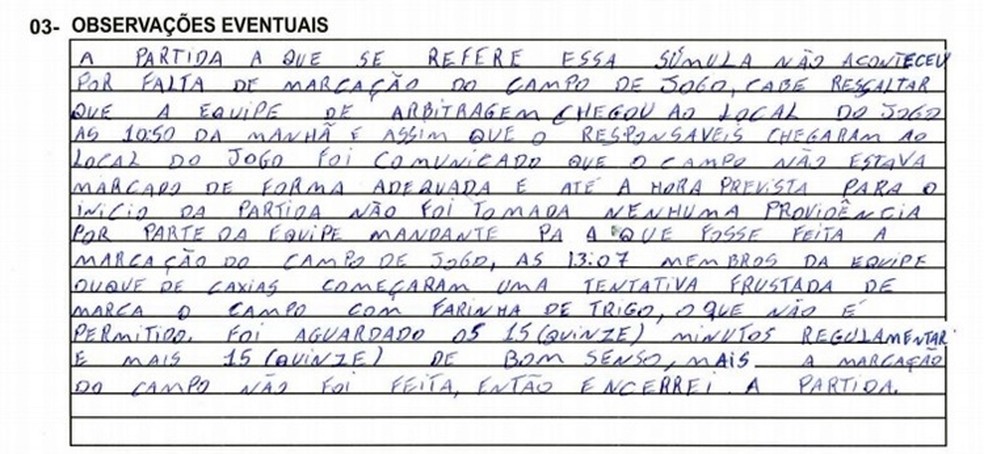 03- OBSERVAÇÕES EVENTUAIS
A PARTIDA A QUE SE REFERE ESSA SÚMULA NÃO ACONTECEU
POR FALTA DE MARCAÇÃO DO CAMPO DE JOGO, CABE RESSALTAR
QUE A EQUIPE DE ARBITRAGEM CHEGOU AO LOCAL DO JOGO
AS 10:50 DA MANHÃ E ASSIM QUE O RESPONSAVEIS CHEGARAM AO
LOCAL DO JOGO FOI COMUNICADO QUE O CAMPO NÃO ESTAVA
MARCADO DE FORMA ADEQUADA E ATÉ A HORA PREVISTA PARA O
INICIO DA PARTIDA NÃO FOI TOMADA NENHUMA PROVIDÊNCIA
POR PARTE DA EQUIPE MANDANTE PA A QUE FOSSE FEITA A
MARCAÇÃO DO CAMPO DE JOGO, AS 13:07 MEMBROS DA EQUIPE
DUQUE DE CAXIAS COMEÇARAM UMA TENTATIVA FRUSTADA DE
MARCA O CAMPO COM FARINHA DE TRIGO, O QUE NÃO É
PERMITIDO. FOI AGUARDADO OS 15 (QUINZE) MINUTOS REGULAMENTAR
E MAIS 15 (QUINZE) DE BOM SENSO, MAIS A MARCAÇÃO
DO CAMPO NÃO FOI FEITA, ENTÃO ENCERREI A PARTIDA.